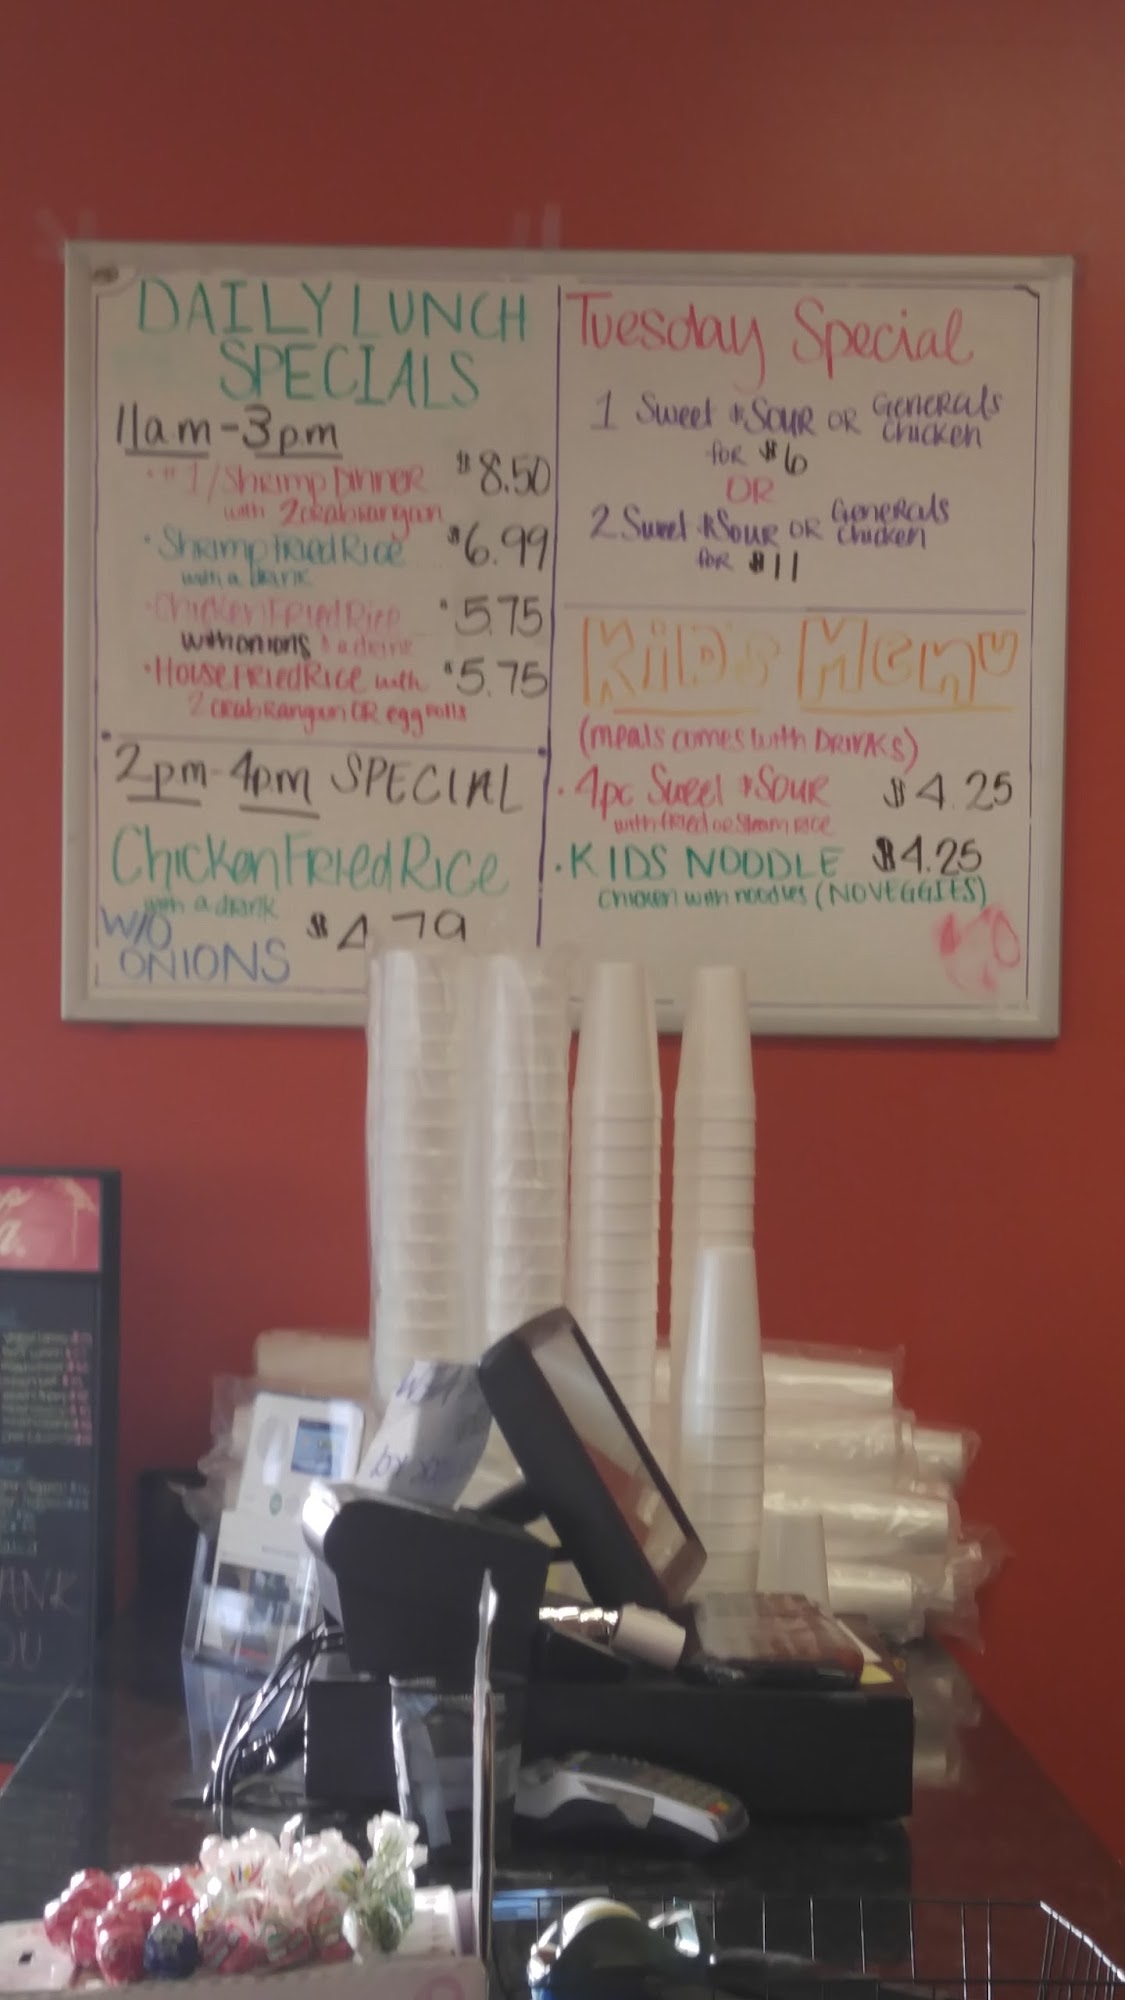 DAILY LUNCH
SPECIALS
11am-3pm
• #1/Shrimp Dinner $8.50
with 2 crab rangun
• Shrimp Fried Rice $6.99
with a drink
• Chicken Fried Rice $5.75
with onions & a drink
• House Fried Rice with $5.75
2 crab Rangun OR egg rolls
2pm-4pm SPECIAL
Chicken Fried Rice
with a drink
W/O
ONIONS
Tuesday Special
1 Sweet & Sour OR Generals
Chicken
for $6
OR
2 Sweet & Sour OR Generals
Chicken
for $11
Kid's Menu
(meals comes with DRINKS)
• 4pc Sweet & Sour $4.25
with fried or Steam rice
• KIDS NOODLE $4.25
Chicken with noodles (NO VEGGIES)